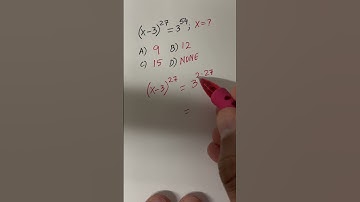 (x-3)²⁷ = 3⁵⁴; x=?
A) 9 B) 12
C) 15 D) NONE
(x-3)²⁷ = 3²·²⁷
=